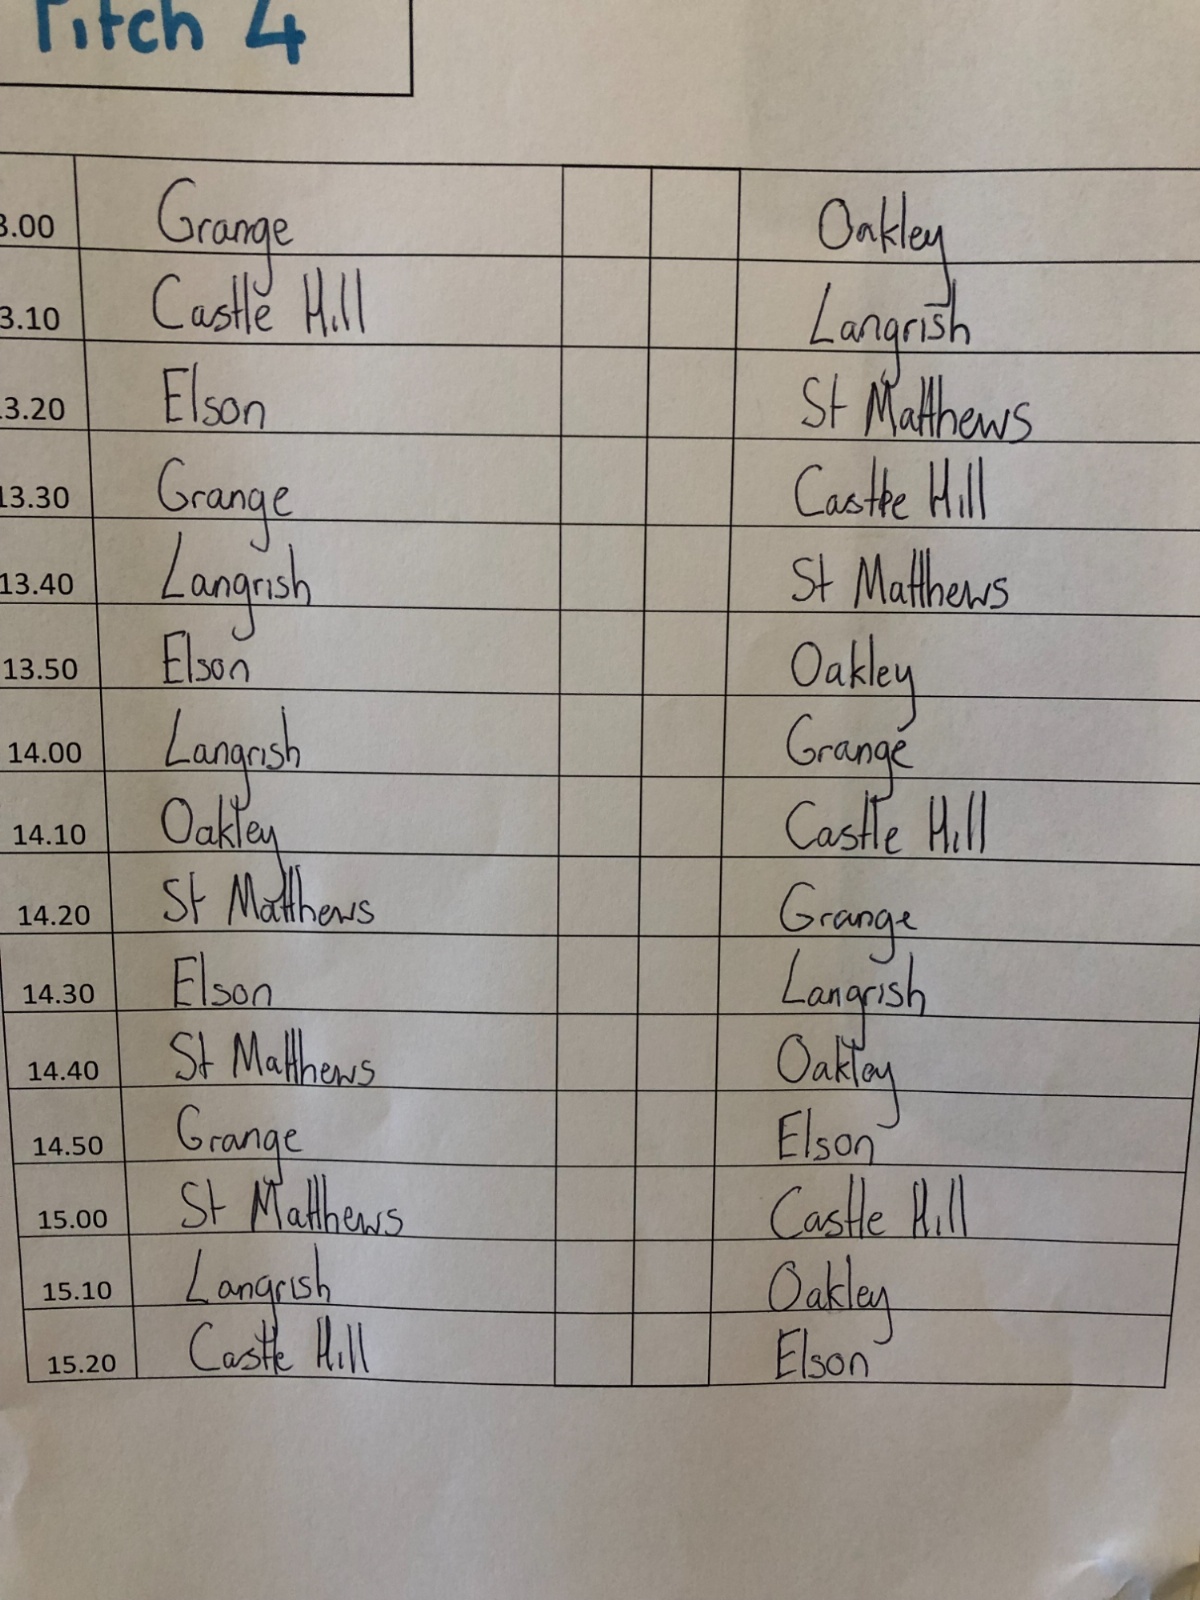 Pitch 4
3.00 Grange Oakley
3.10 Castle Hill Langrish
3.20 Elson St Matthews
13.30 Grange Castle Hill
13.40 Langrish St Matthews
13.50 Elson Oakley
14.00 Langrish Grange
14.10 Oakley Castle Hill
14.20 St Matthews Grange
14.30 Elson Langrish
14.40 St Matthews Oakley
14.50 Grange Elson
15.00 St Matthews Castle Hill
15.10 Langrish Oakley
15.20 Castle Hill Elson